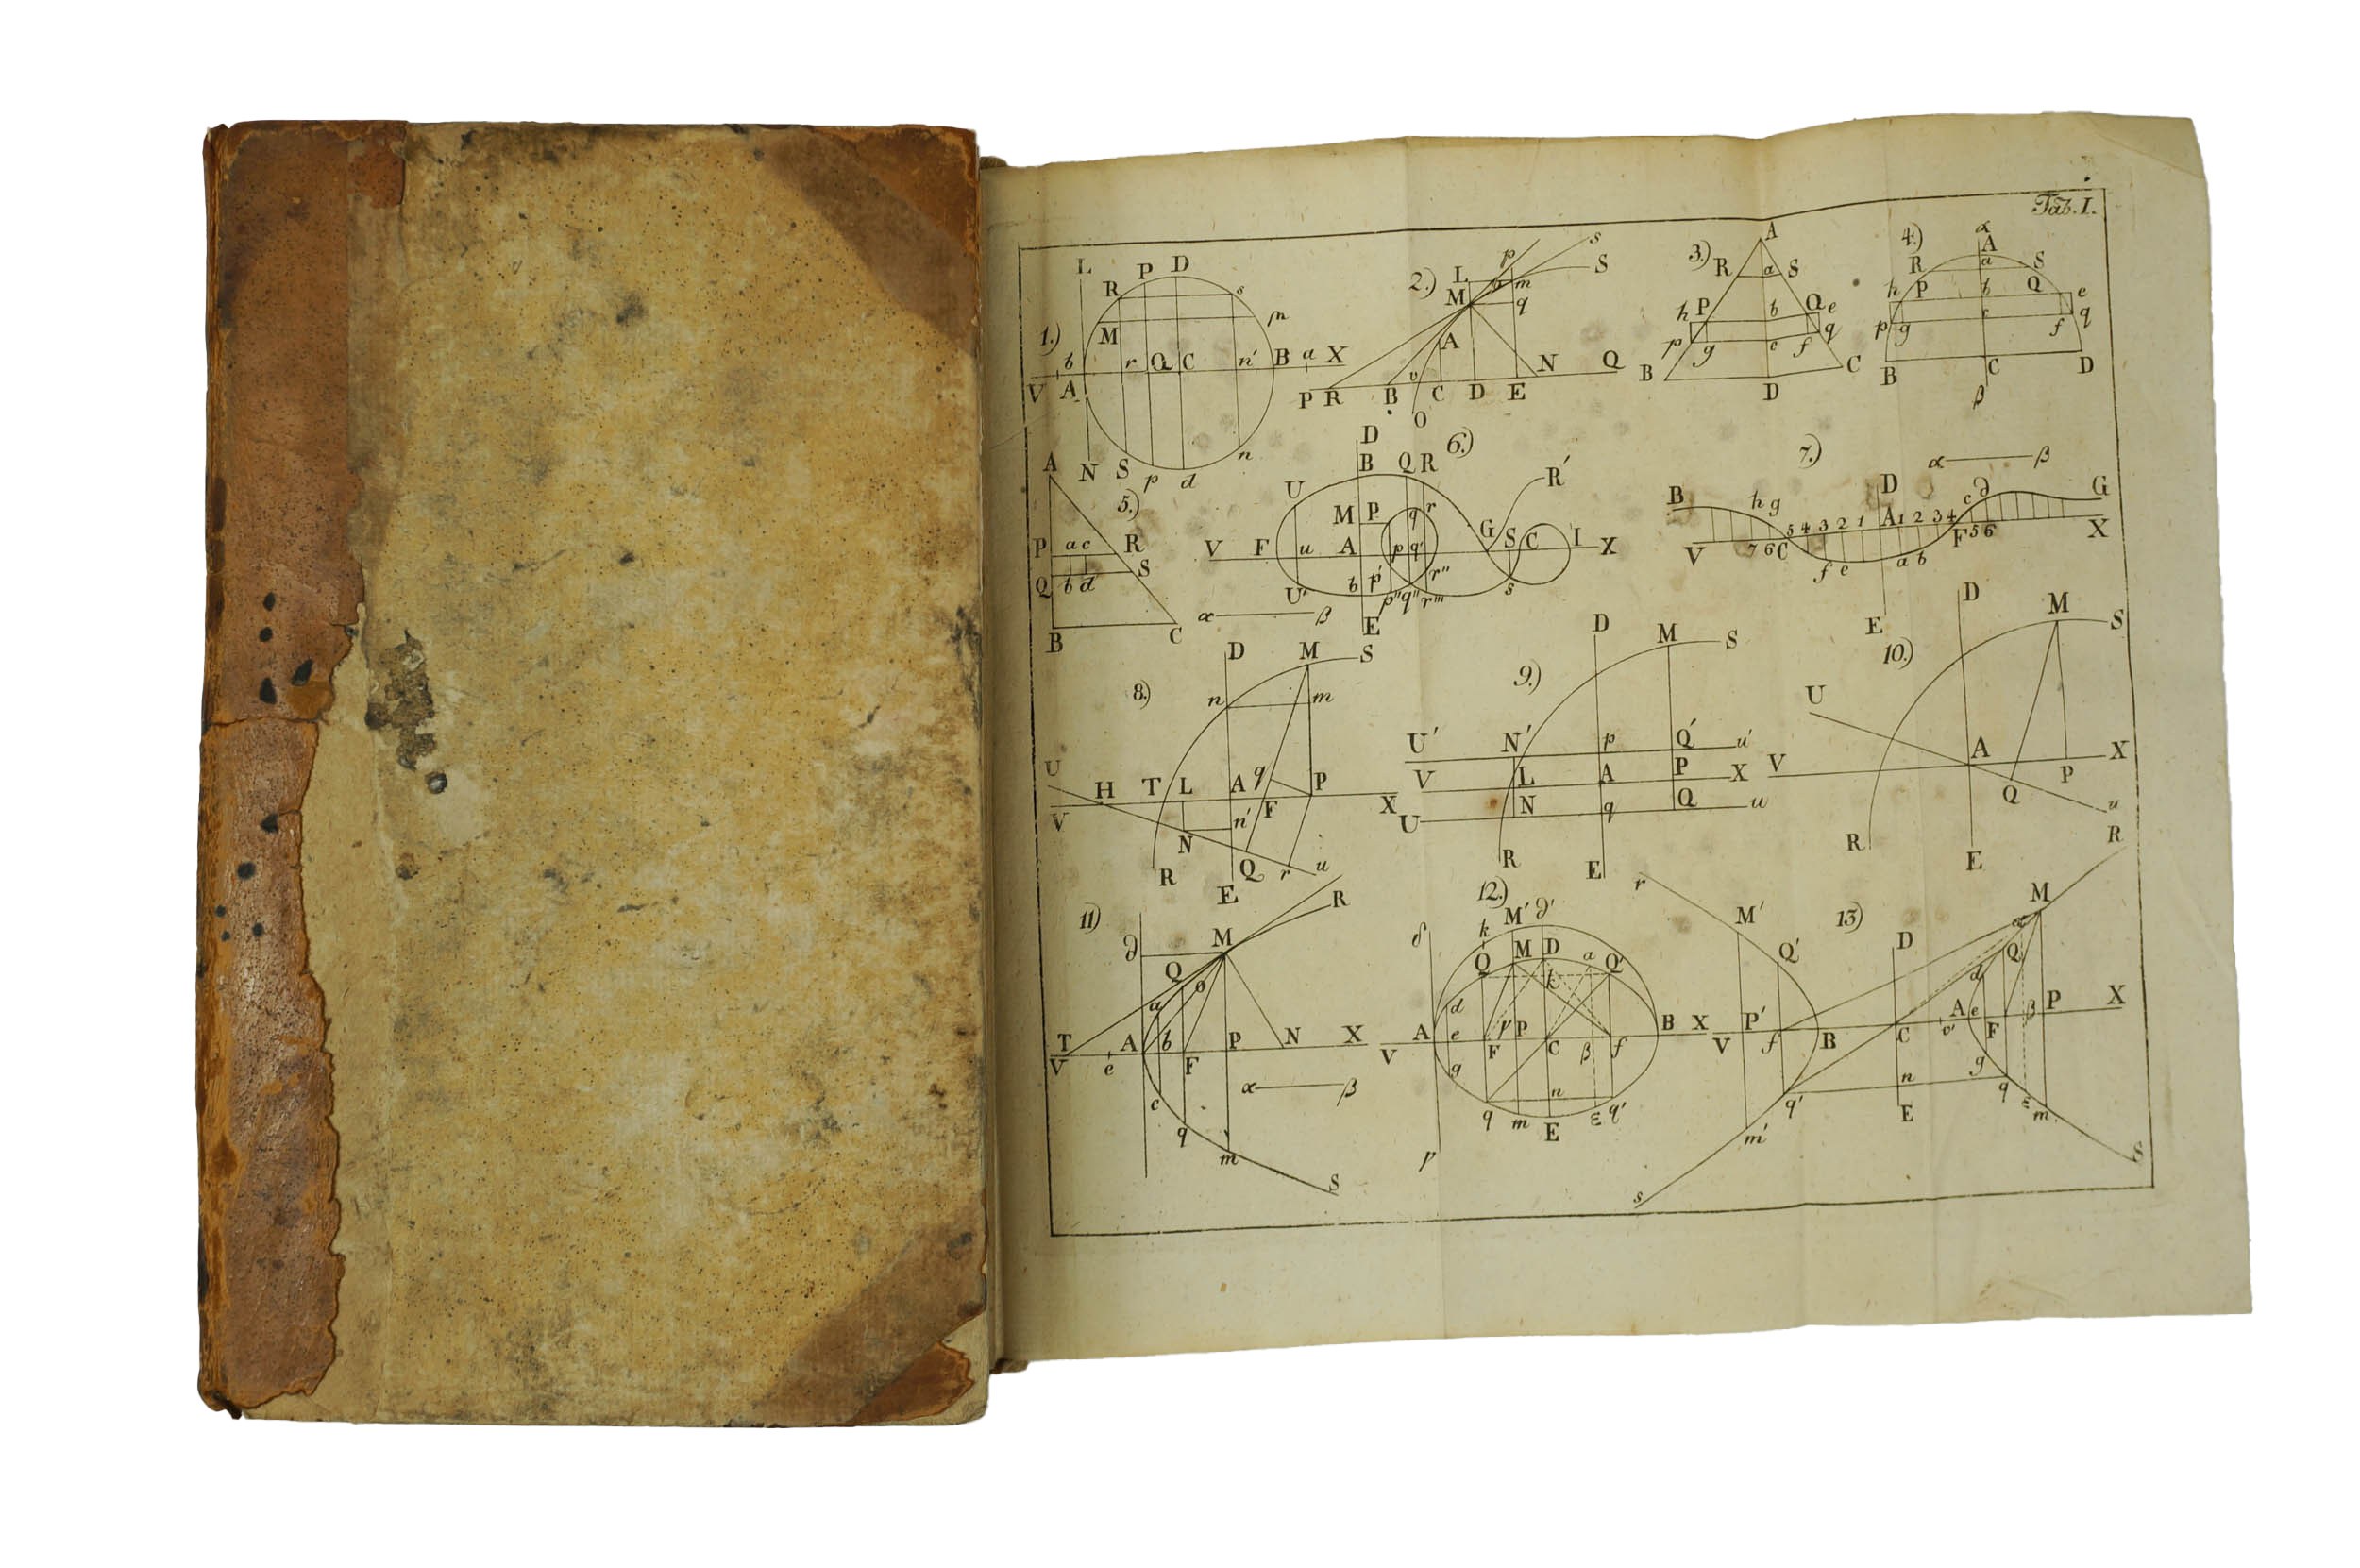 Tab. I.
1.)
L
P D
R
s
M
m
b
r Q C n' B a X
V A
N S p d n
2.)
p s
L S
m
M q
A
v
N Q
P R B C D E
O
3.)
A
R a S
h P b Q e
p g c f q
B D C
4.)
α
A
R a S
h P b Q e
p g c f q
B C D
β
5.)
A
P a c R
Q b d S
B C
6.)
D
B Q R
R'
U
M P q r
G S C I X
V F u A p q'
U' b p' r''
p'' q'' r''' s
α β
E
7.)
α β
B h g D c ∂ G
5 4 3 2 1 A 1 2 3 4
V 7 6 C F 5 6 X
f e a b
E
8.)
D M S
n m
U H T L A q P
V F X
n'
N
R E Q r u
9.)
D M S
U' N' p Q' u'
V L A P X
U N q Q u
R E
10.)
D M S
U
V A X
Q P
u
R E
11)
R
∂ M
Q
a o
T A b P N X
V e F
α β
c
q
m
S
12.)
M' ∂'
δ k
Q M D a Q'
k
d
A e p P B X
V F C β f
g
n
q m E ε q'
p
13)
r R
M' M
α
Q' D Q
d
P' A e β P X
V f B C v' F
g
n q
q' E ε m
m'
s S